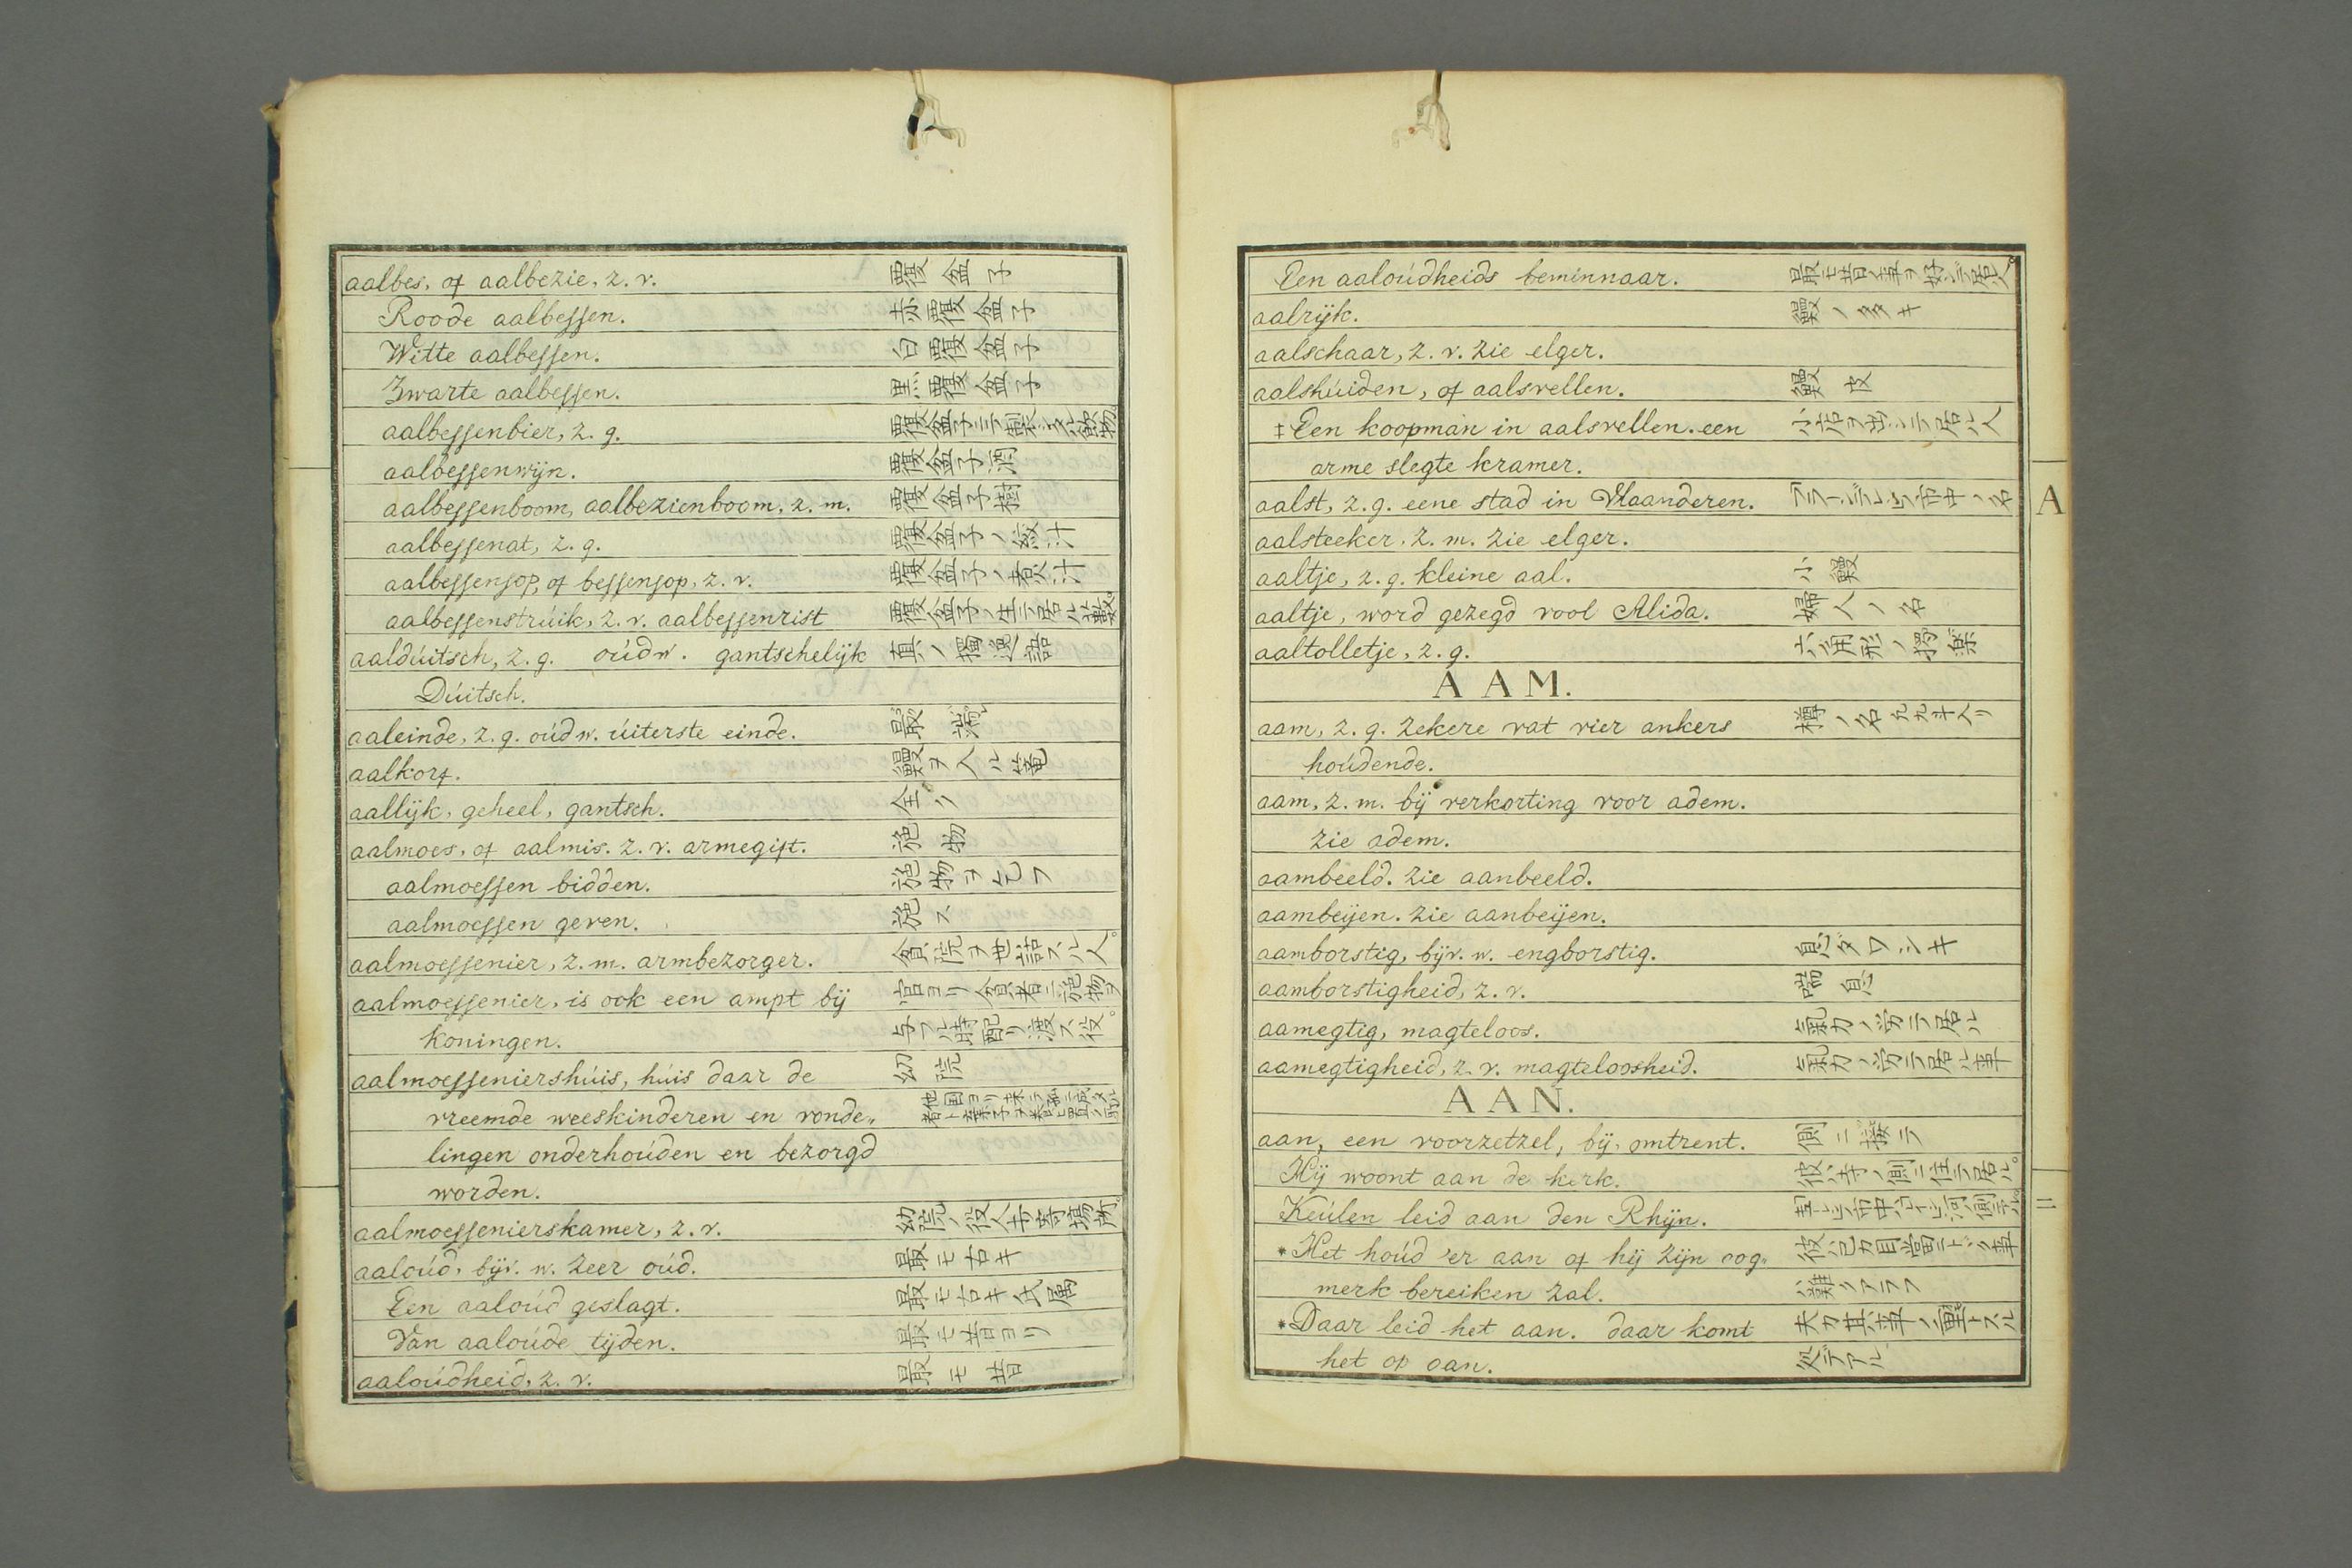 aalbes, of aalbezie, z. v. 覆盆子
Roode aalbessen. 赤覆盆子
Witte aalbessen. 白覆盆子
Zwarte aalbessen. 黒覆盆子
aalbessenbier, z. g. 覆盆子ニテ製シタル飲物
aalbessenwijn. 覆盆子酒
aalbessenboom, aalbezienboom, z. m. 覆盆子樹
aalbessenat, z. g. 覆盆子ノ絞汁
aalbessensop, of bessensop, z. v. 覆盆子ノ煮汁
aalbessenstrúik, z. v. aalbessenrist 覆盆子ノ生テ居ル
aaldúitsch, z. g. oúd w. gantschelijk 直ノ獨逸語
Dúitsch.
aaleinde, z. g. oúd w. úiterste einde. 最端
aalkorf. 鰻ヲ入ル篭
aallijk, geheel, gantsch. 全ク
aalmoes, of aalmis. z. v. armegift. 施物
aalmoessen bidden. 施物ヲ乞フ
aalmoessen geven. 施ス
aalmoessenier, z. m. armbezorger. 貧院ヲ世話スル人。
aalmoessenier, is ook een ampt bij 官ヨリ貧者ニ施物ヲ
koningen. 与フル時配リ渡ス役。
aalmoesseniershúis, húis daar de 幼院
vreemde weeskinderen en vonde„
lingen onderhoúden en bezorgd
worden.
aalmoessenierskamer, z. v. 幼院ノ役人寄場所。
aaloúd, bijv. w. zeer oúd. 最モ古キ
Een aaloúd geslagt. 最モ古キ氏属
Van aaloúde tijden. 最モ昔ヨリ
aaloúdheid, z. v. 最モ昔
Een aaloúdheids beminnaar. 最モ昔ノ事ヲ好テ居人。
aalrijk. 鰻ノ多キ
aalschaar, z. v. zie elger.
aalshúiden, of aalsvellen. 鰻皮
‡Een koopman in aalsvellen. een 小店ヲ出シテ居ル人
arme slegte kramer.
aalst, z. g. eene stad in Vlaanderen. 市中ノ名
A
aalsteeker, z. m. zie elger.
aaltje, z. g. kleine aal. 小鰻
aaltje, word gezegd vool Alida. 婦人ノ名
aaltolletje, z. g. 六角形ノ
AAM.
aam, z. g. zekere vat vier ankers 樽ノ名
hoúdende.
aam, z. m. bij verkorting voor adem.
zie adem.
aambeeld. zie aanbeeld.
aambeijen. zie aanbeijen.
aamborstig, bijv. w. engborstig. 息ダワシキ
aamborstigheid, z. v. 喘息
aamegtig, magteloos. 氣力ノ労テ居ル
aamegtigheid, z. v. magteloosheid. 氣力ノ労テ居ル事
AAN.
aan, een voorzetzel, bij, omtrent. 側ニ接テ
Hij woont aan de kerk. 彼ハ寺ノ側ニ住テ居ル。
Keúlen leid aan den Rhijn.
二
*Het hoúd 'er aan of hij zijn oog„
merk bereiken zal. 難クアラフ
*Daar leid het aan. daar komt 夫ガ其事ノ
het op aan. 処デアル